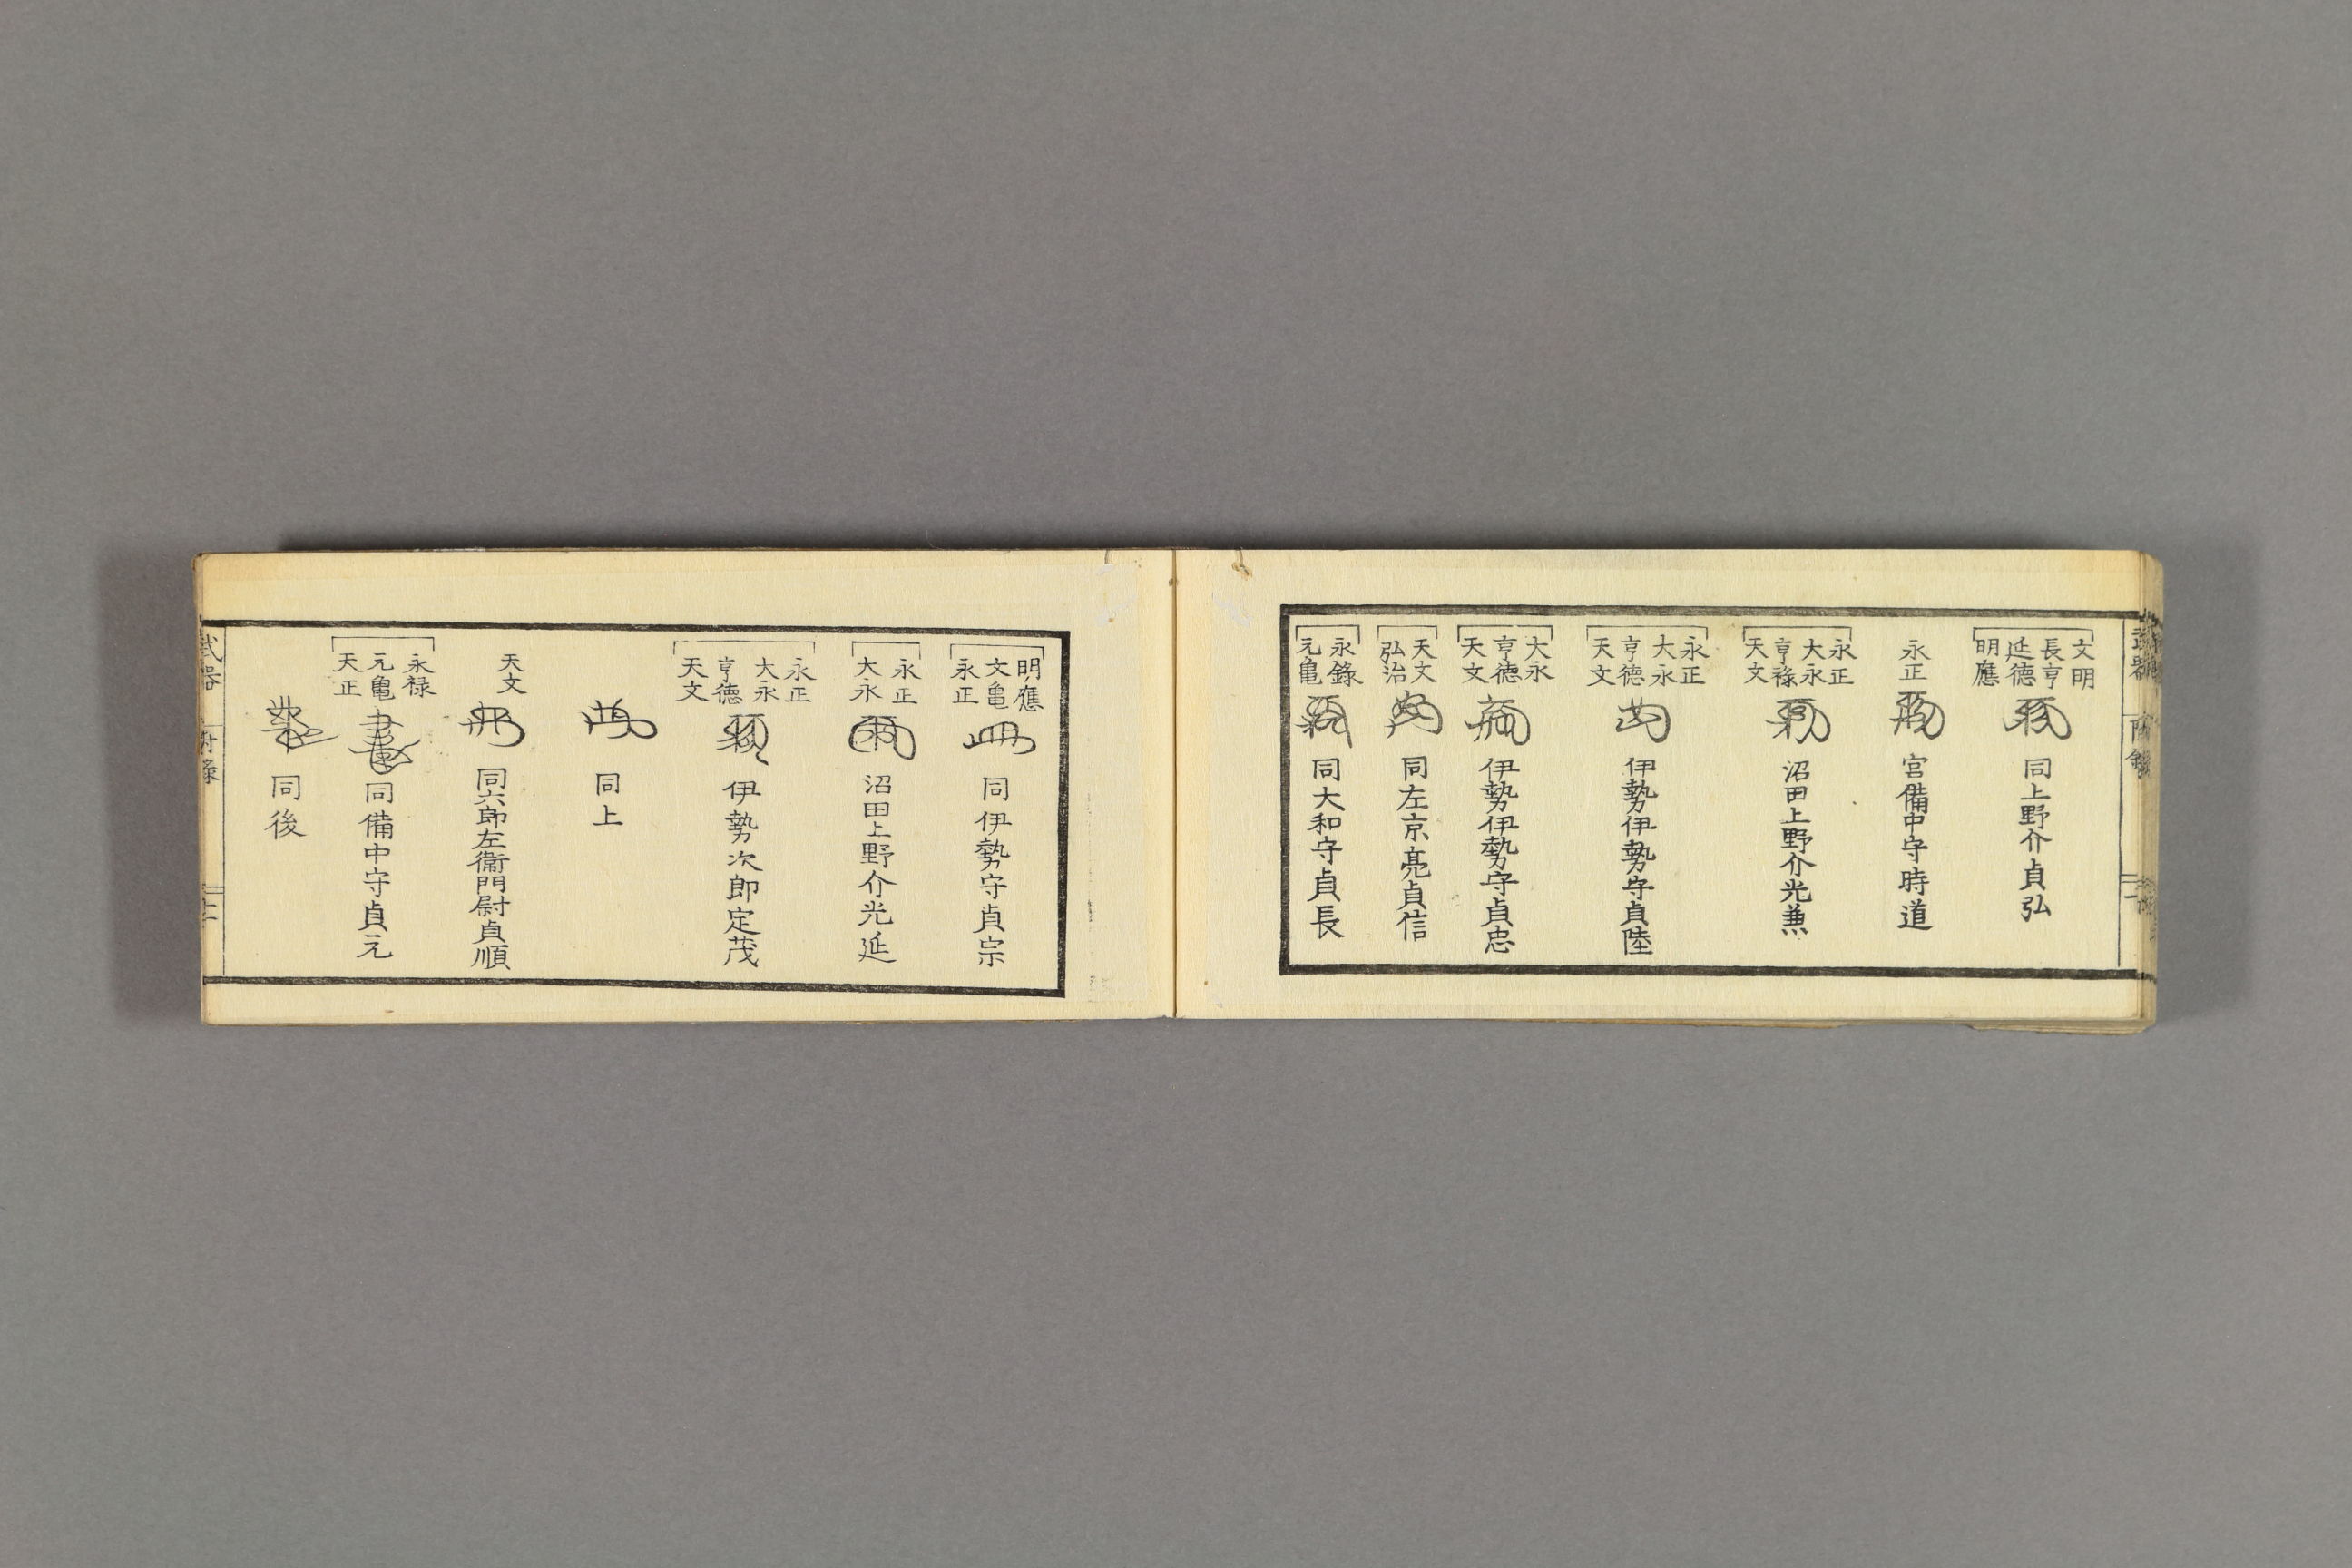 文明
長亨
延德
明應
同上野介貞弘
永正
宮備中守時道
永正
大永
亨祿
天文
沼田上野介光兼
永正
大永
亨德
天文
伊勢伊勢守貞陸
大永
亨德
天文
伊勢伊勢守貞忠
天文
弘治
同左京亮貞信
永錄
元亀
同大和守貞長
明應
文亀
永正
同伊勢守貞宗
永正
大永
沼田上野介光延
永正
大永
亨德
天文
伊勢次郎定茂
同上
天文
同六郎左衞門尉貞順
永禄
元亀
天正
同備中守貞元
同後
武器
附錄